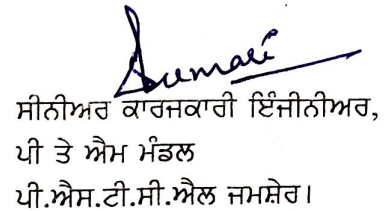 ਸੀਨੀਅਰ ਕਾਰਜਕਾਰੀ ਇੰਜੀਨੀਅਰ,
ਪੀ ਤੇ ਐਮ ਮੰਡਲ
ਪੀ.ਐਸ.ਟੀ.ਸੀ.ਐਲ ਜਮਸ਼ੇਰ।